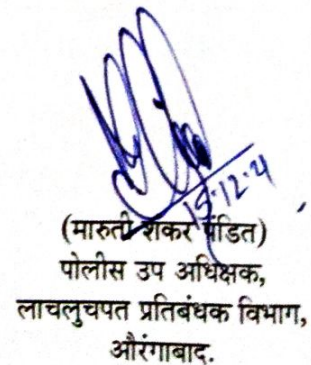 15.12.21
(मारुती शंकर पंडित)
पोलीस उप अधिक्षक,
लाचलुचपत प्रतिबंधक विभाग,
औरंगाबाद.